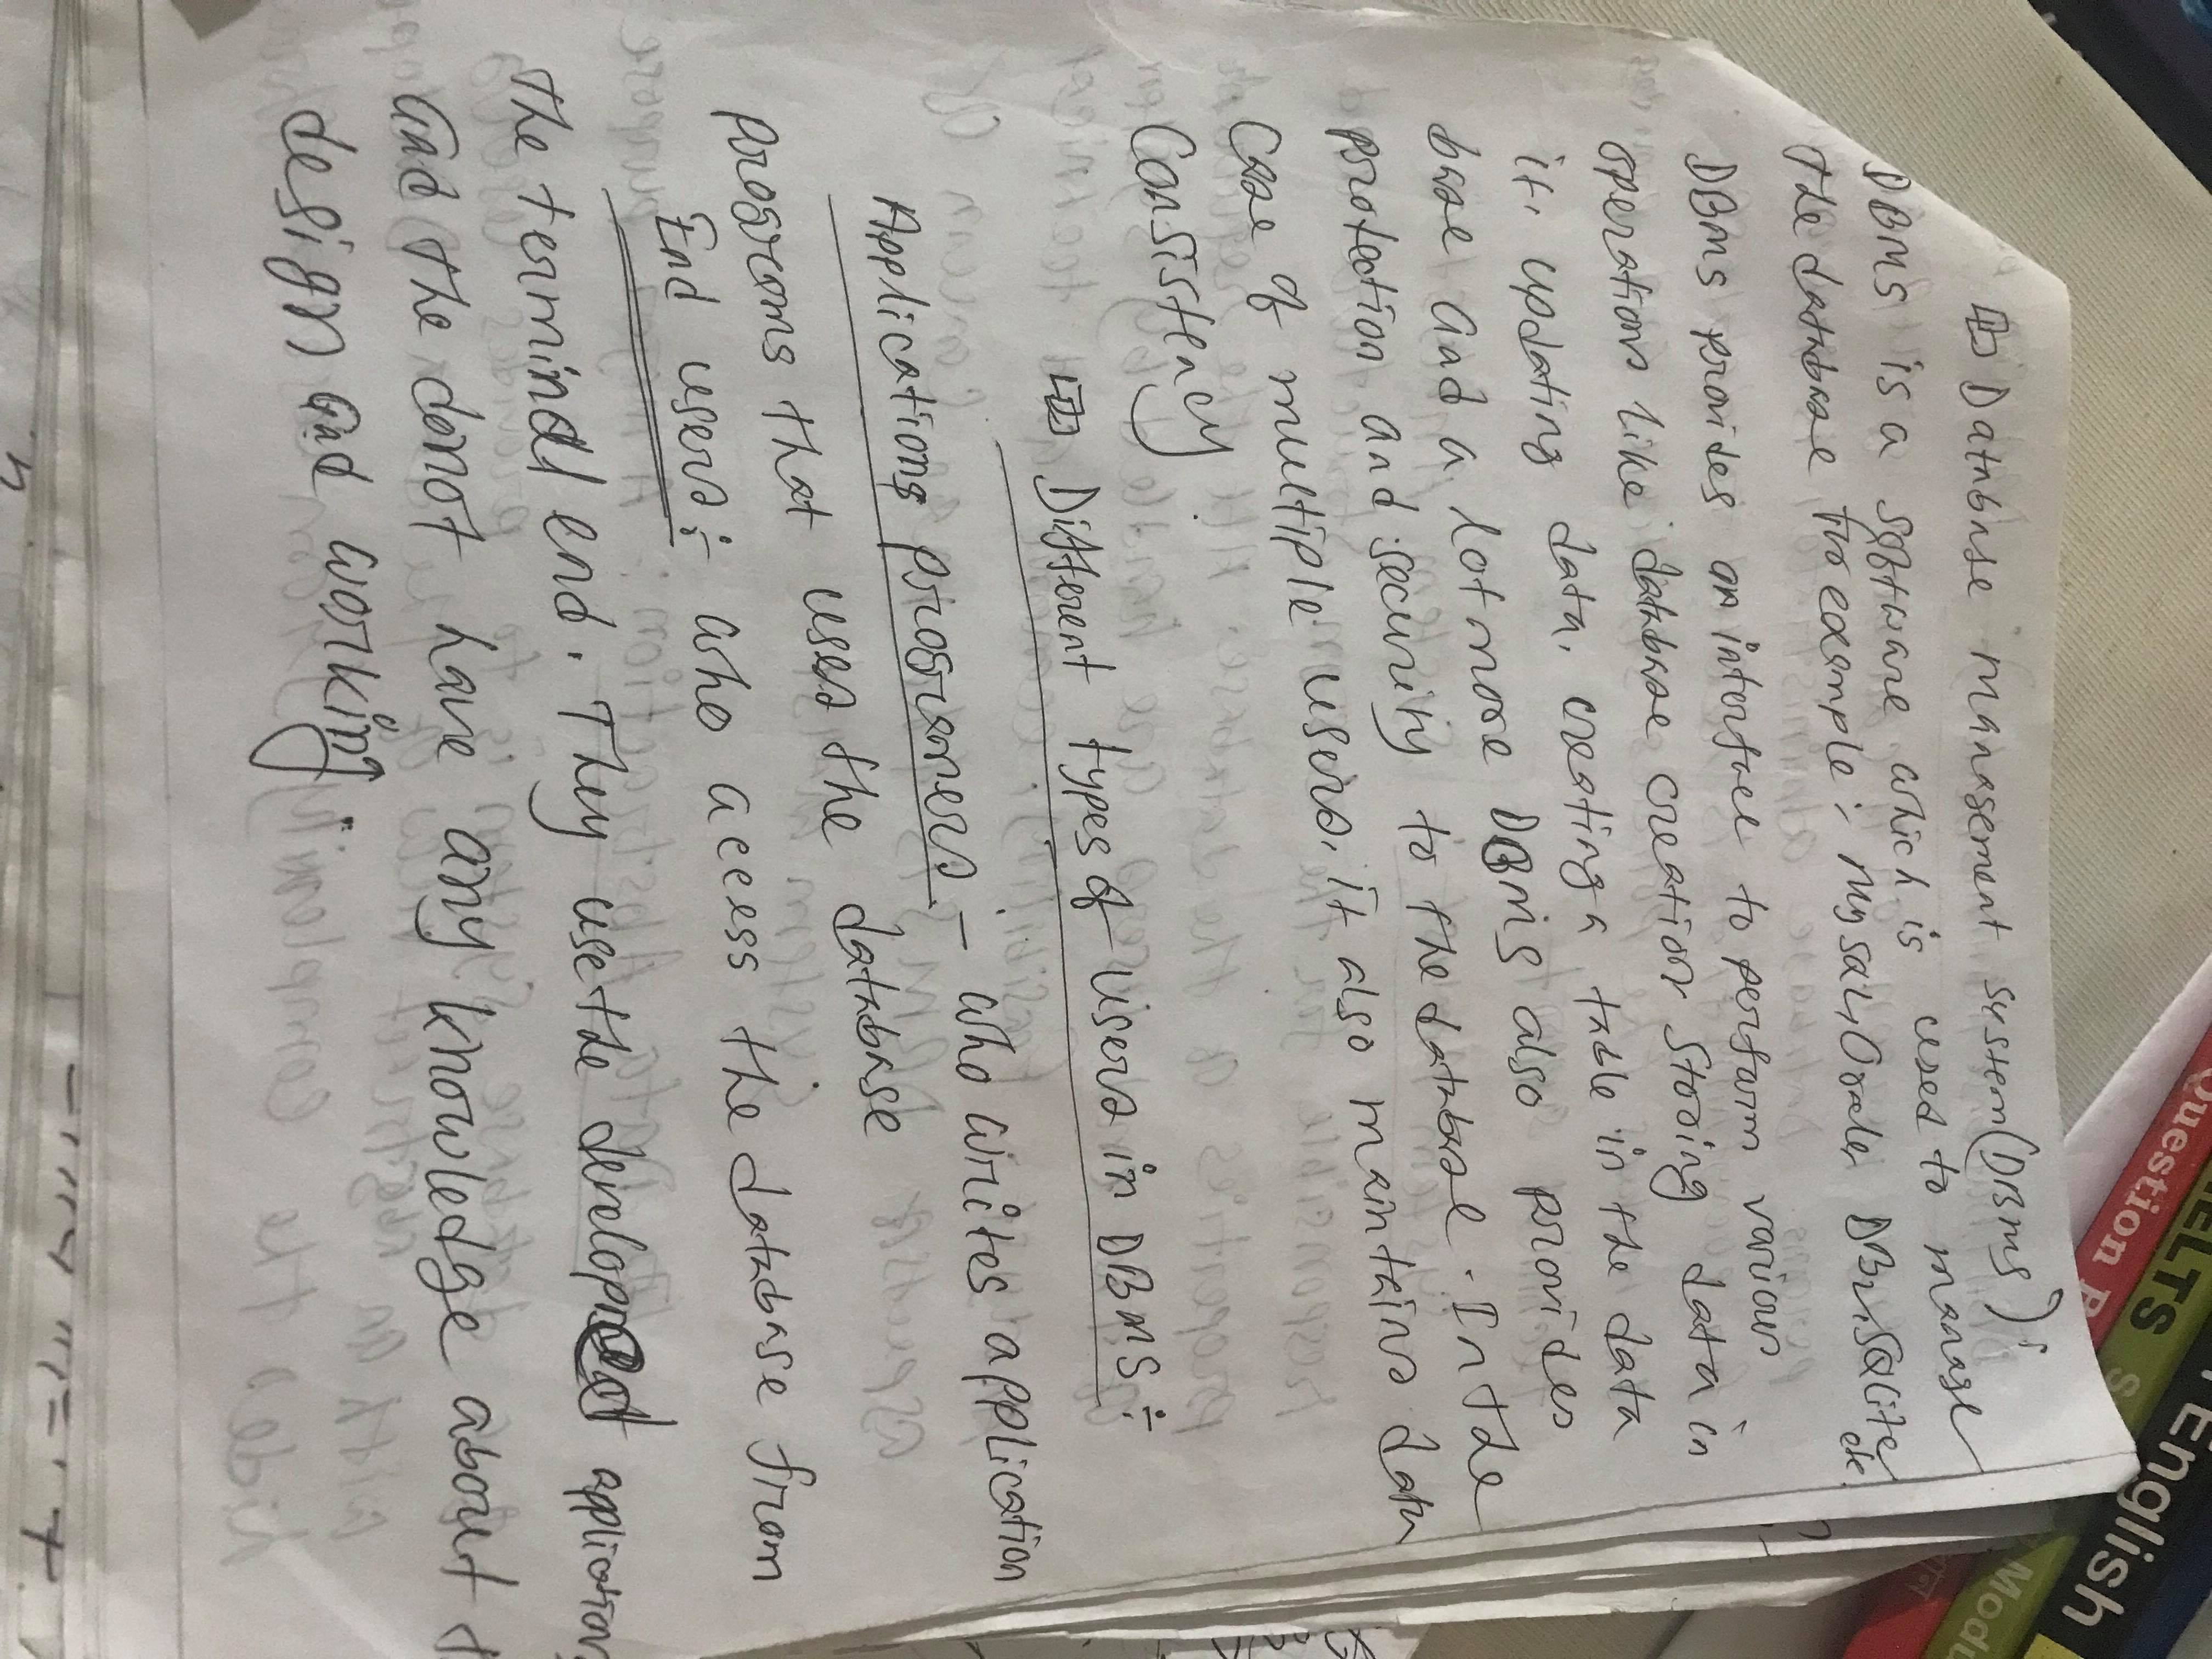 English
IELTS
Question
Modu
Database Management System (DBMS):
DBMS is a software which is used to manage
the database for example: MySQL, Oracle, DB2, SQLite
etc.
DBMS provides an interface to perform various
operations like database creation storing data in
it, updating data, creating a table in the data
base and a lot more DBMS also provides
protection and security to the database. In the
Case of multiple users, it also maintains data
Consistency.
Different types of Users in DBMS ÷
Applications programers :- who writes application
programs that uses the database
End users :- who access the database from
the terminal end. They use the developed application
and the donot have any knowledge about
design and working.